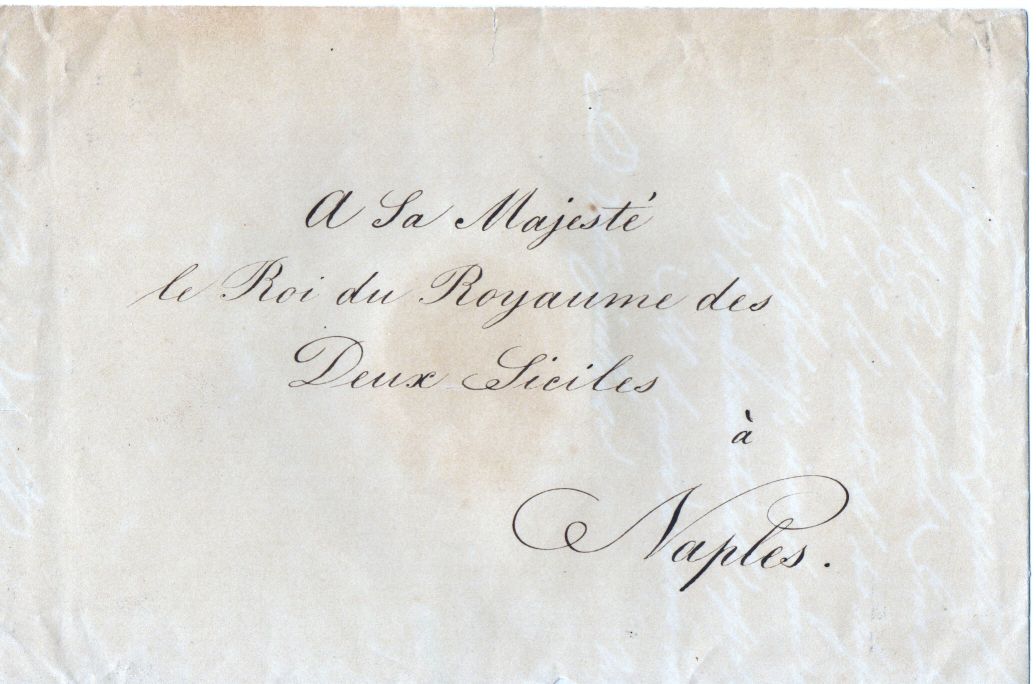 A Sa Majesté
le Roi du Royaume des
Deux Siciles
à
Naples.